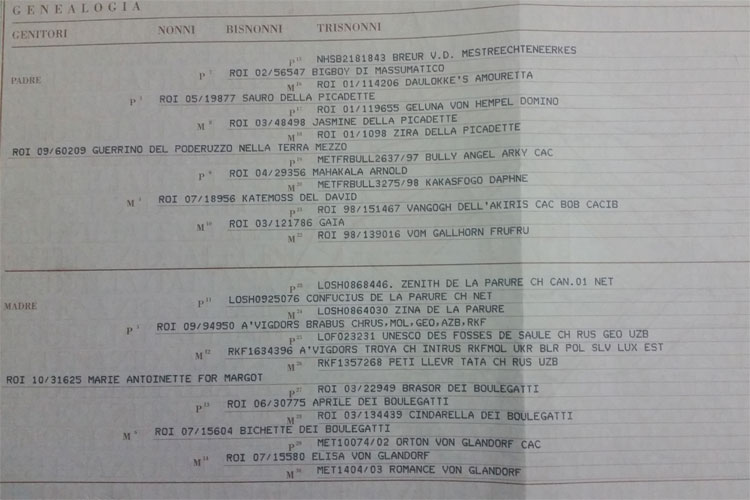 GENEALOGIA
GENITORI NONNI BISNONNI TRISNONNI
P NHSB2181843 BREUR V.D. MESTREECHTENEERKES
P ROI 02/56547 BIGBOY DI MASSUMATICO
PADRE
M ROI 01/114206 DAULOKKE'S AMOURETTA
P ROI 05/19877 SAURO DELLA PICADETTE
P ROI 01/119655 GELUNA VON HEMPEL DOMINO
M ROI 03/48498 JASMINE DELLA PICADETTE
M ROI 01/1098 ZIRA DELLA PICADETTE
ROI 09/60209 GUERRINO DEL PODERUZZO NELLA TERRA MEZZO
P METFRBULL2637/97 BULLY ANGEL ARKY CAC
P ROI 04/29356 MAHAKALA ARNOLD
M METFRBULL3275/98 KAKASFOGO DAPHNE
M ROI 07/18956 KATEMOSS DEL DAVID
P ROI 98/151467 VANGOGH DELL'AKIRIS CAC BOB CACIB
M ROI 03/121786 GAIA
M ROI 98/139016 VOM GALLHORN FRUFRU
P LOSH0868446. ZENITH DE LA PARURE CH CAN.01 NET
P LOSH0925076 CONFUCIUS DE LA PARURE CH NET
MADRE
M LOSH0864030 ZINA DE LA PARURE
P ROI 09/94950 A'VIGDORS BRABUS CHRUS,MOL,GEO,AZB,RKF
P LOF023231 UNESCO DES FOSSES DE SAULE CH RUS GEO UZB
M RKF1684396 A'VIGDORS TROYA CH INTRUS RKFMOL UKR BLR POL SLV LUX EST
M RKF1357268 PETI LLEVR TATA CH RUS UZB
ROI 10/31625 MARIE ANTOINETTE FOR MARGOT
P ROI 03/22949 BRASOR DEI BOULEGATTI
P ROI 06/30775 APRILE DEI BOULEGATTI
M ROI 03/134439 CINDARELLA DEI BOULEGATTI
M ROI 07/15604 BICHETTE DEI BOULEGATTI
P MET10074/02 ORTON VON GLANDORF CAC
M ROI 07/15580 ELISA VON GLANDORF
M MET1404/03 ROMANCE VON GLANDORF